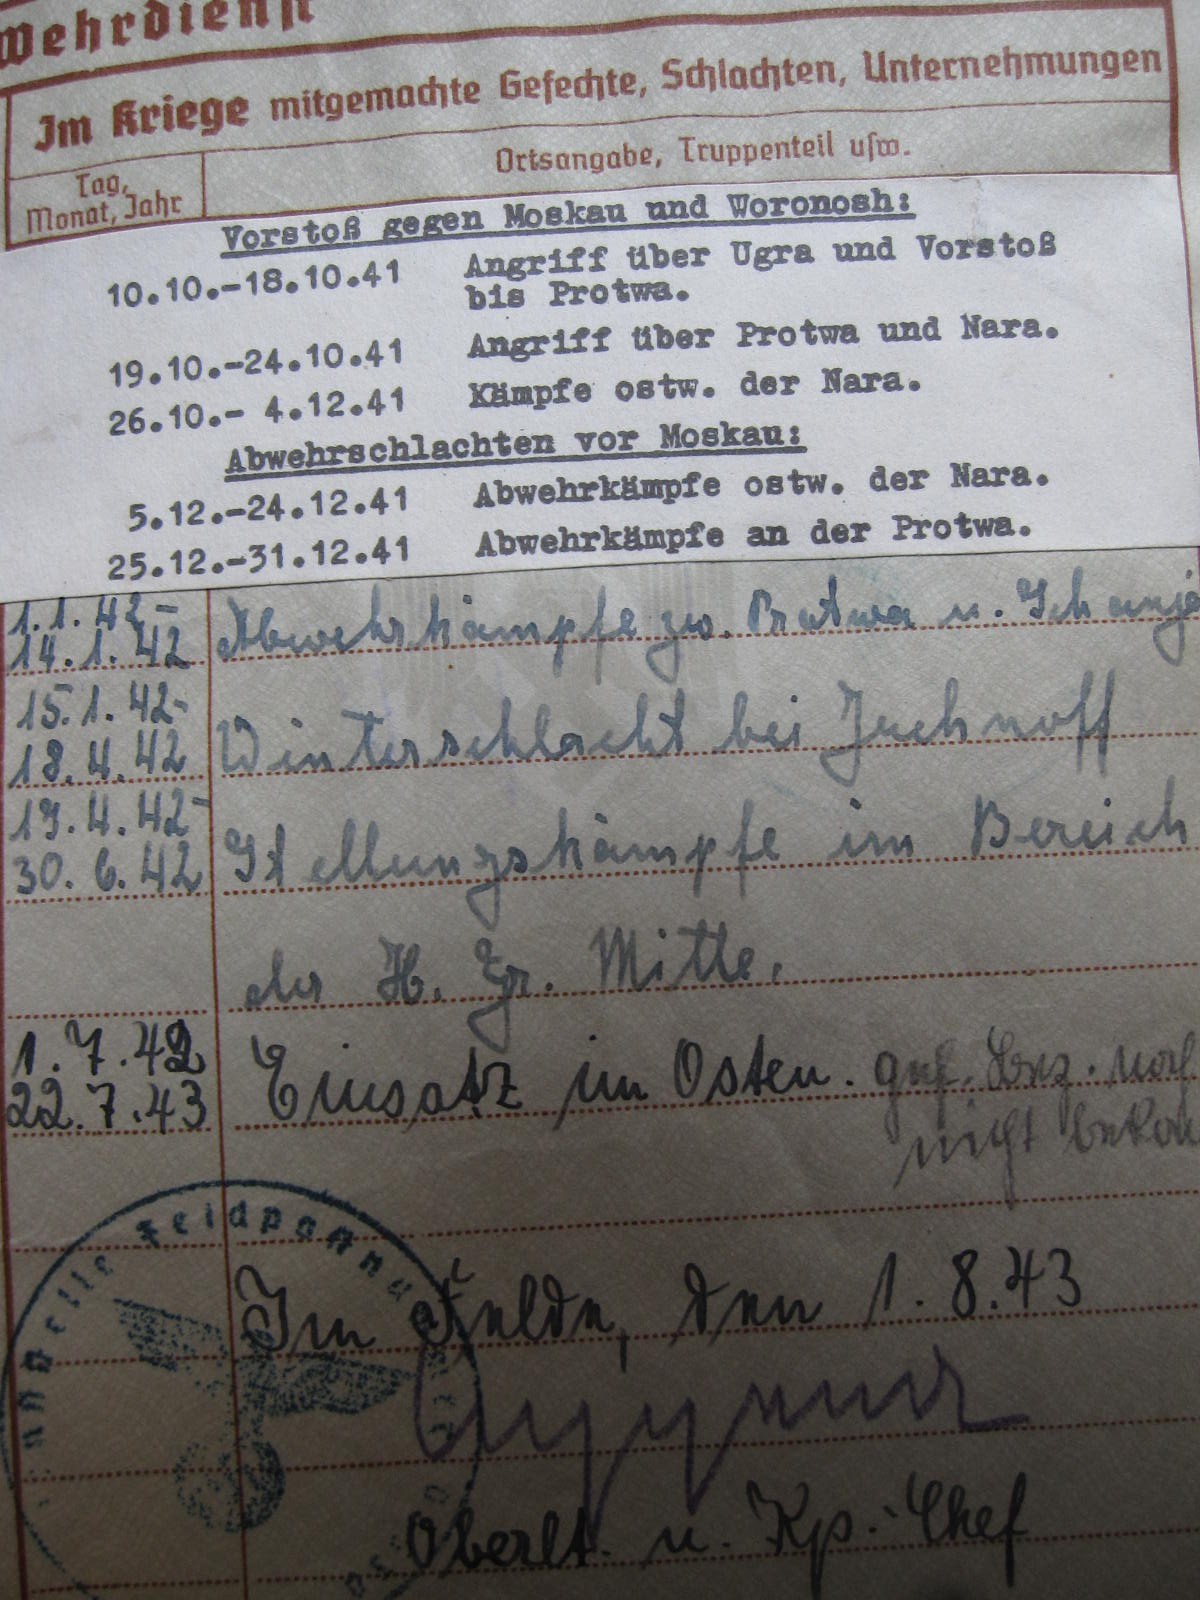 Wehrdienst
Im Kriege mitgemachte Gefechte, Schlachten, Unternehmungen
Tag,
Monat, Jahr
Ortsangabe, Truppenteil usw.
Vorstoß gegen Moskau und Woronosh:
10.10.-18.10.41 Angriff über Ugra und Vorstoß
bis Protwa.
19.10.-24.10.41 Angriff über Protwa und Nara.
26.10.- 4.12.41 Kämpfe ostw. der Nara.
Abwehrschlachten vor Moskau:
5.12.-24.12.41 Abwehrkämpfe ostw. der Nara.
25.12.-31.12.41 Abwehrkämpfe an der Protwa.
1.1.42-
14.1.42 Abwehrkämpfe zw. Protwa u. Schanja
15.1.42-
18.4.42 Winterschlacht bei Juchnoff
19.4.42-
30.6.42 Stellungskämpfe im Bereich
der H. Gr. Mitte.
1.7.42
22.7.43 Einsatz im Osten. gef. Bez. noch
nicht bekan
Feldpostnu
Im Felde, den 1.8.43
Oberlt. u. Kp.-Chef